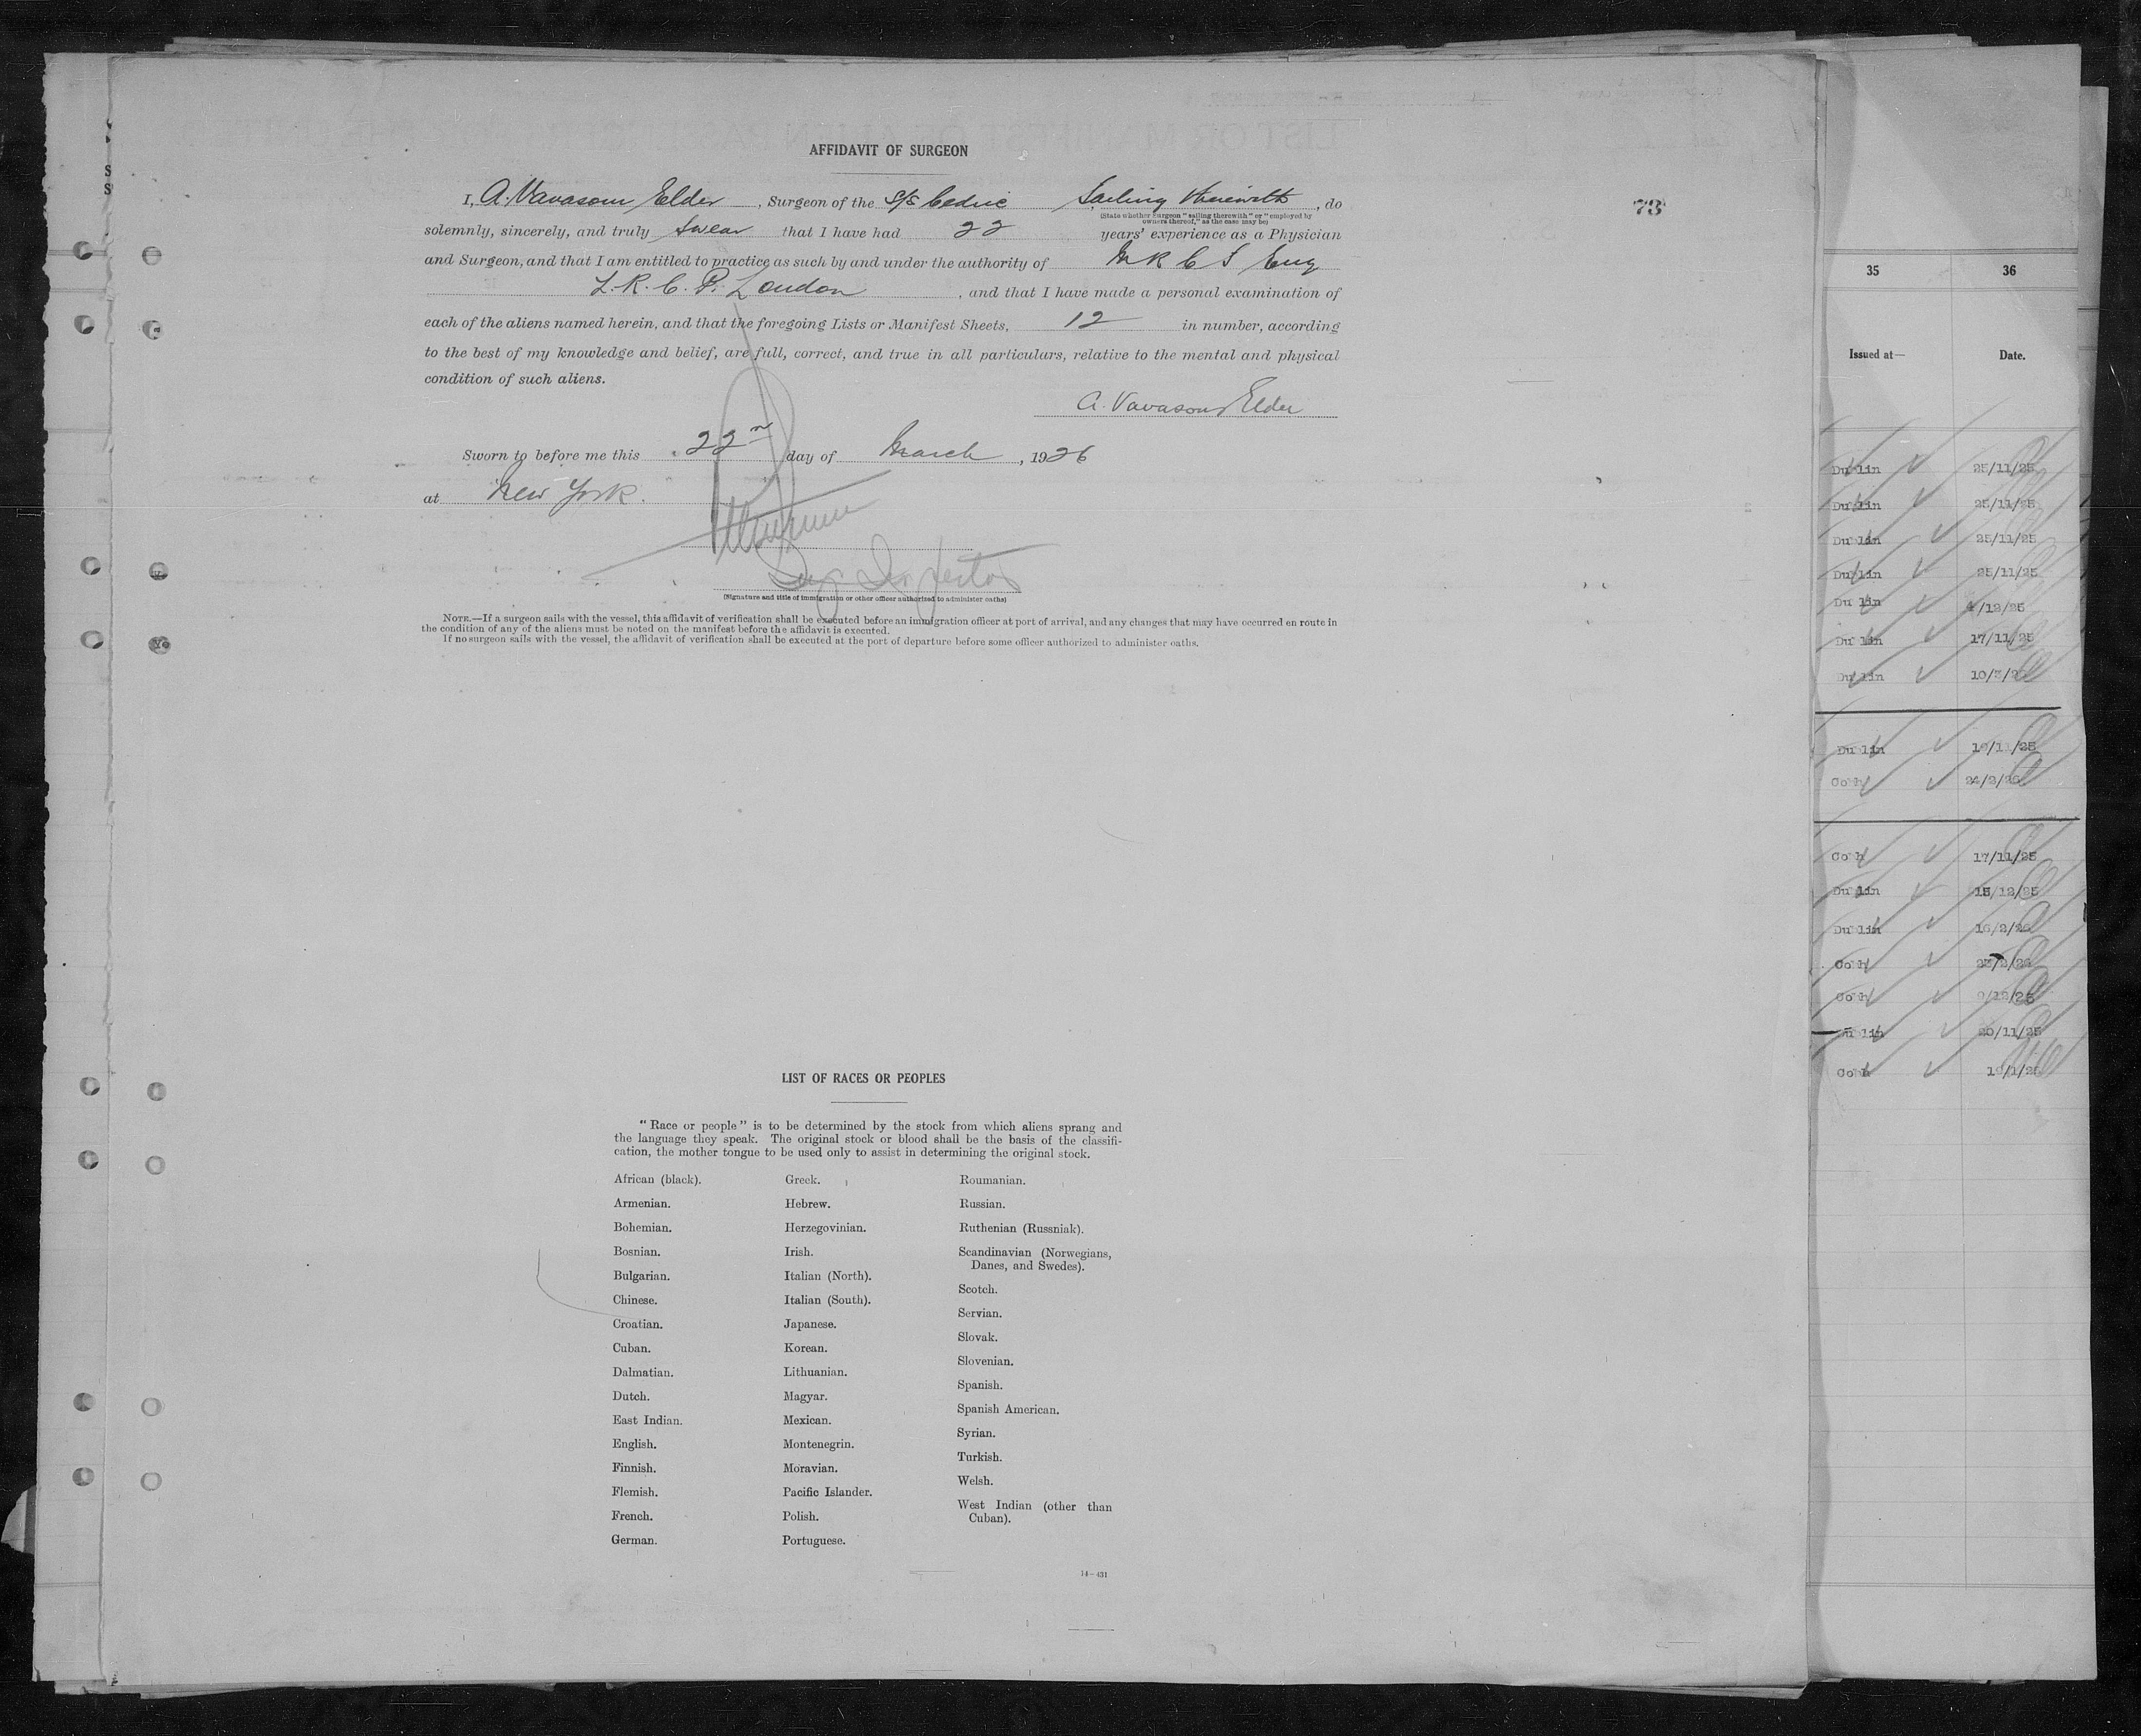 AFFIDAVIT OF SURGEON
I, A. Vavasour Elder, Surgeon of the S/S Cedric Sailing therewith, do
(State whether Surgeon "sailing therewith" or "employed by
owners thereof," as the case may be)
73
solemnly, sincerely, and truly swear that I have had 22 years' experience as a Physician
and Surgeon, and that I am entitled to practice as such by and under the authority of M R C S Eng
L.R.C.P. London, and that I have made a personal examination of
each of the aliens named herein, and that the foregoing Lists or Manifest Sheets, 12 in number, according
to the best of my knowledge and belief, are full, correct, and true in all particulars, relative to the mental and physical
condition of such aliens.
A. Vavasour Elder
Sworn to before me this 22nd day of March, 1926
at New York.
Inspector
(Signature and title of immigration or other officer authorized to administer oaths)
NOTE.—If a surgeon sails with the vessel, this affidavit of verification shall be executed before an immigration officer at port of arrival, and any changes that may have occurred en route in
the condition of any of the aliens must be noted on the manifest before the affidavit is executed.
If no surgeon sails with the vessel, the affidavit of verification shall be executed at the port of departure before some officer authorized to administer oaths.
LIST OF RACES OR PEOPLES
"Race or people" is to be determined by the stock from which aliens sprang and
the language they speak. The original stock or blood shall be the basis of the classifi-
cation, the mother tongue to be used only to assist in determining the original stock.
African (black).
Armenian.
Bohemian.
Bosnian.
Bulgarian.
Chinese.
Croatian.
Cuban.
Dalmatian.
Dutch.
East Indian.
English.
Finnish.
Flemish.
French.
German.
Greek.
Hebrew.
Herzegovinian.
Irish.
Italian (North).
Italian (South).
Japanese.
Korean.
Lithuanian.
Magyar.
Mexican.
Montenegrin.
Moravian.
Pacific Islander.
Polish.
Portuguese.
Roumanian.
Russian.
Ruthenian (Russniak).
Scandinavian (Norwegians,
Danes, and Swedes).
Scotch.
Servian.
Slovak.
Slovenian.
Spanish.
Spanish American.
Syrian.
Turkish.
Welsh.
West Indian (other than
Cuban).
14-431
35 36
Issued at— Date.
Dublin 25/11/25
Dublin 25/11/25
Dublin 25/11/25
Dublin 25/11/25
Dublin /12/25
Dublin 17/11/25
Dublin
Dublin
Cobh 24/2/26
Cobh 17/11/25
Dublin 15/12/25
Dublin 16/2/26
Cobh
Cobh 9/12/25
Dublin 20/11/25
Cobh